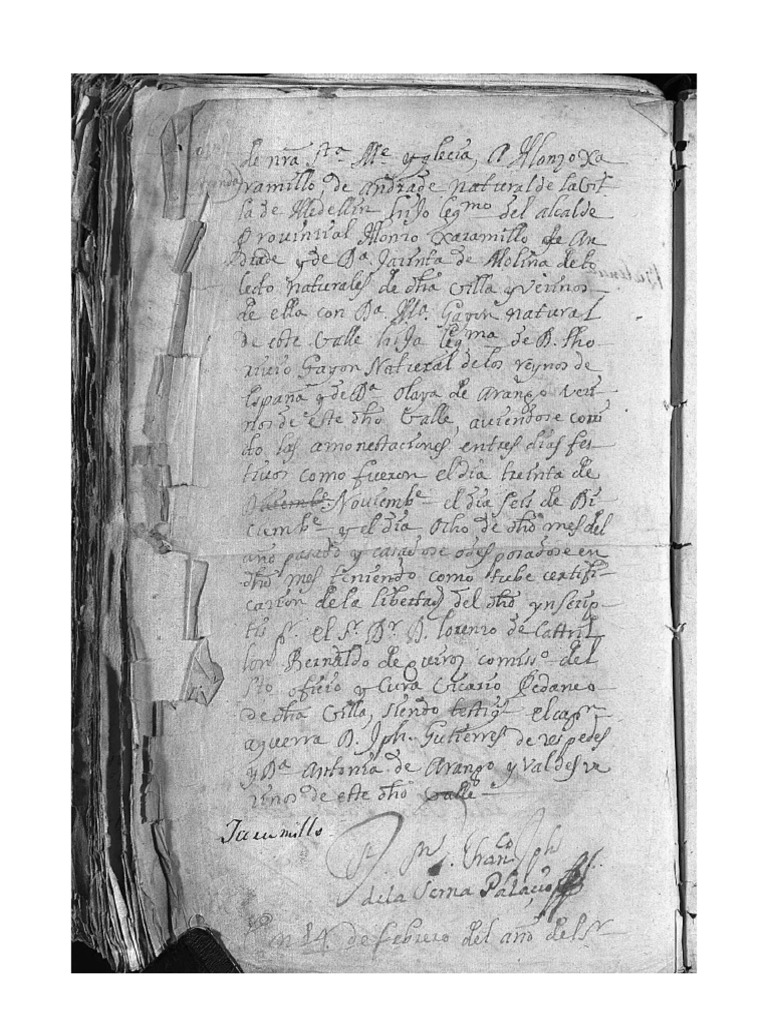 de nra Sta Me yglecia, A Alonzo Xa
ramillo, de Andrade natural de la Vi
lla de Medellin hijo legmo del alcalde
Provinsial Alonzo Xaramillo de An
drade y de Da Jacinta de Molina de to
ledo naturales de dha Villa y vecinos
de ella con Da Ma. Gaxon natural
de este Valle hija legma de D.
Gaxon Natural de los reynos de
España y de Da Olaya de Arango veci
nos de este dho Valle, auiendose cori
do las amonestaciones en tres dias fes
tiuos como fueron el dia treinta de
Nouiembe el dia seis de Di
ciembe y el dia ocho de dho mes del
año pasado y casadose o desposadose en
dho mes teniendo como tube certifi
cacion de la libertad del dho ynscrip
tis pr. el Sr. Dr. D. Lorenzo de Castri
llon Bernaldo de quiroz comisso. del
Sto oficio y Cura Vicario Pedaneo
de dha Villa, siendo testigs el capn
a guerra D. Jph. Gutierres de cespedes
y Da Antonia de Arango y Valdes ve
cinos de este dho Valle
Jaramillo
Franco Jph
de la Serna Palacio
En 14 de febrero del año del Sr